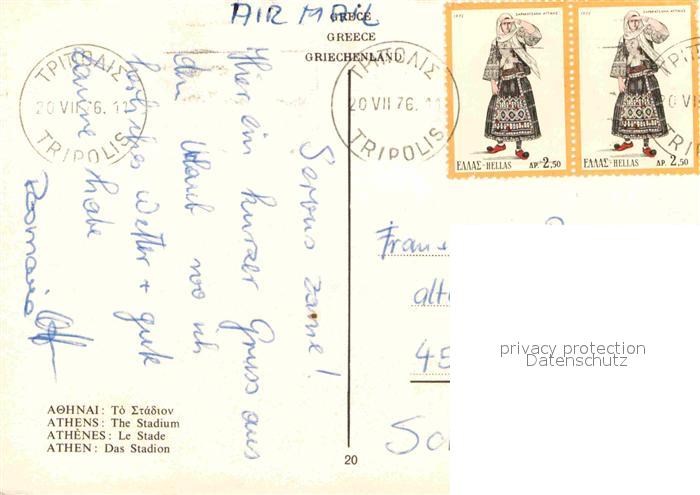 AIR MAIL
GRÈCE
GREECE
GRIECHENLAND
ΤΡΙΠΟΛΙΣ
20 VII 76. 11
TRIPOLIS
ΤΡΙΠΟΛΙΣ
20 VII 76. 11
TRIPOLIS
1972
ΣΑΡΑΚΑΤΣΑΝΑ ΑΤΤΙΚΗΣ
ΕΛΛΑΣ-HELLAS ΔΡ. 2,50
1972
ΣΑΡΑΚΑΤΣΑΝΑ ΑΤΤΙΚΗΣ
ΕΛΛΑΣ-HELLAS ΔΡ. 2,50
Servus zäme!
Hier ein kurzer Gruss aus
den Urlaub wo ich
herrliches Wetter + gute
Laune habe
ΑΘΗΝΑΙ: Τὸ Στάδιον
ATHENS: The Stadium
ATHÈNES: Le Stade
ATHEN: Das Stadion
20
alte
45
privacy protection
Datenschutz